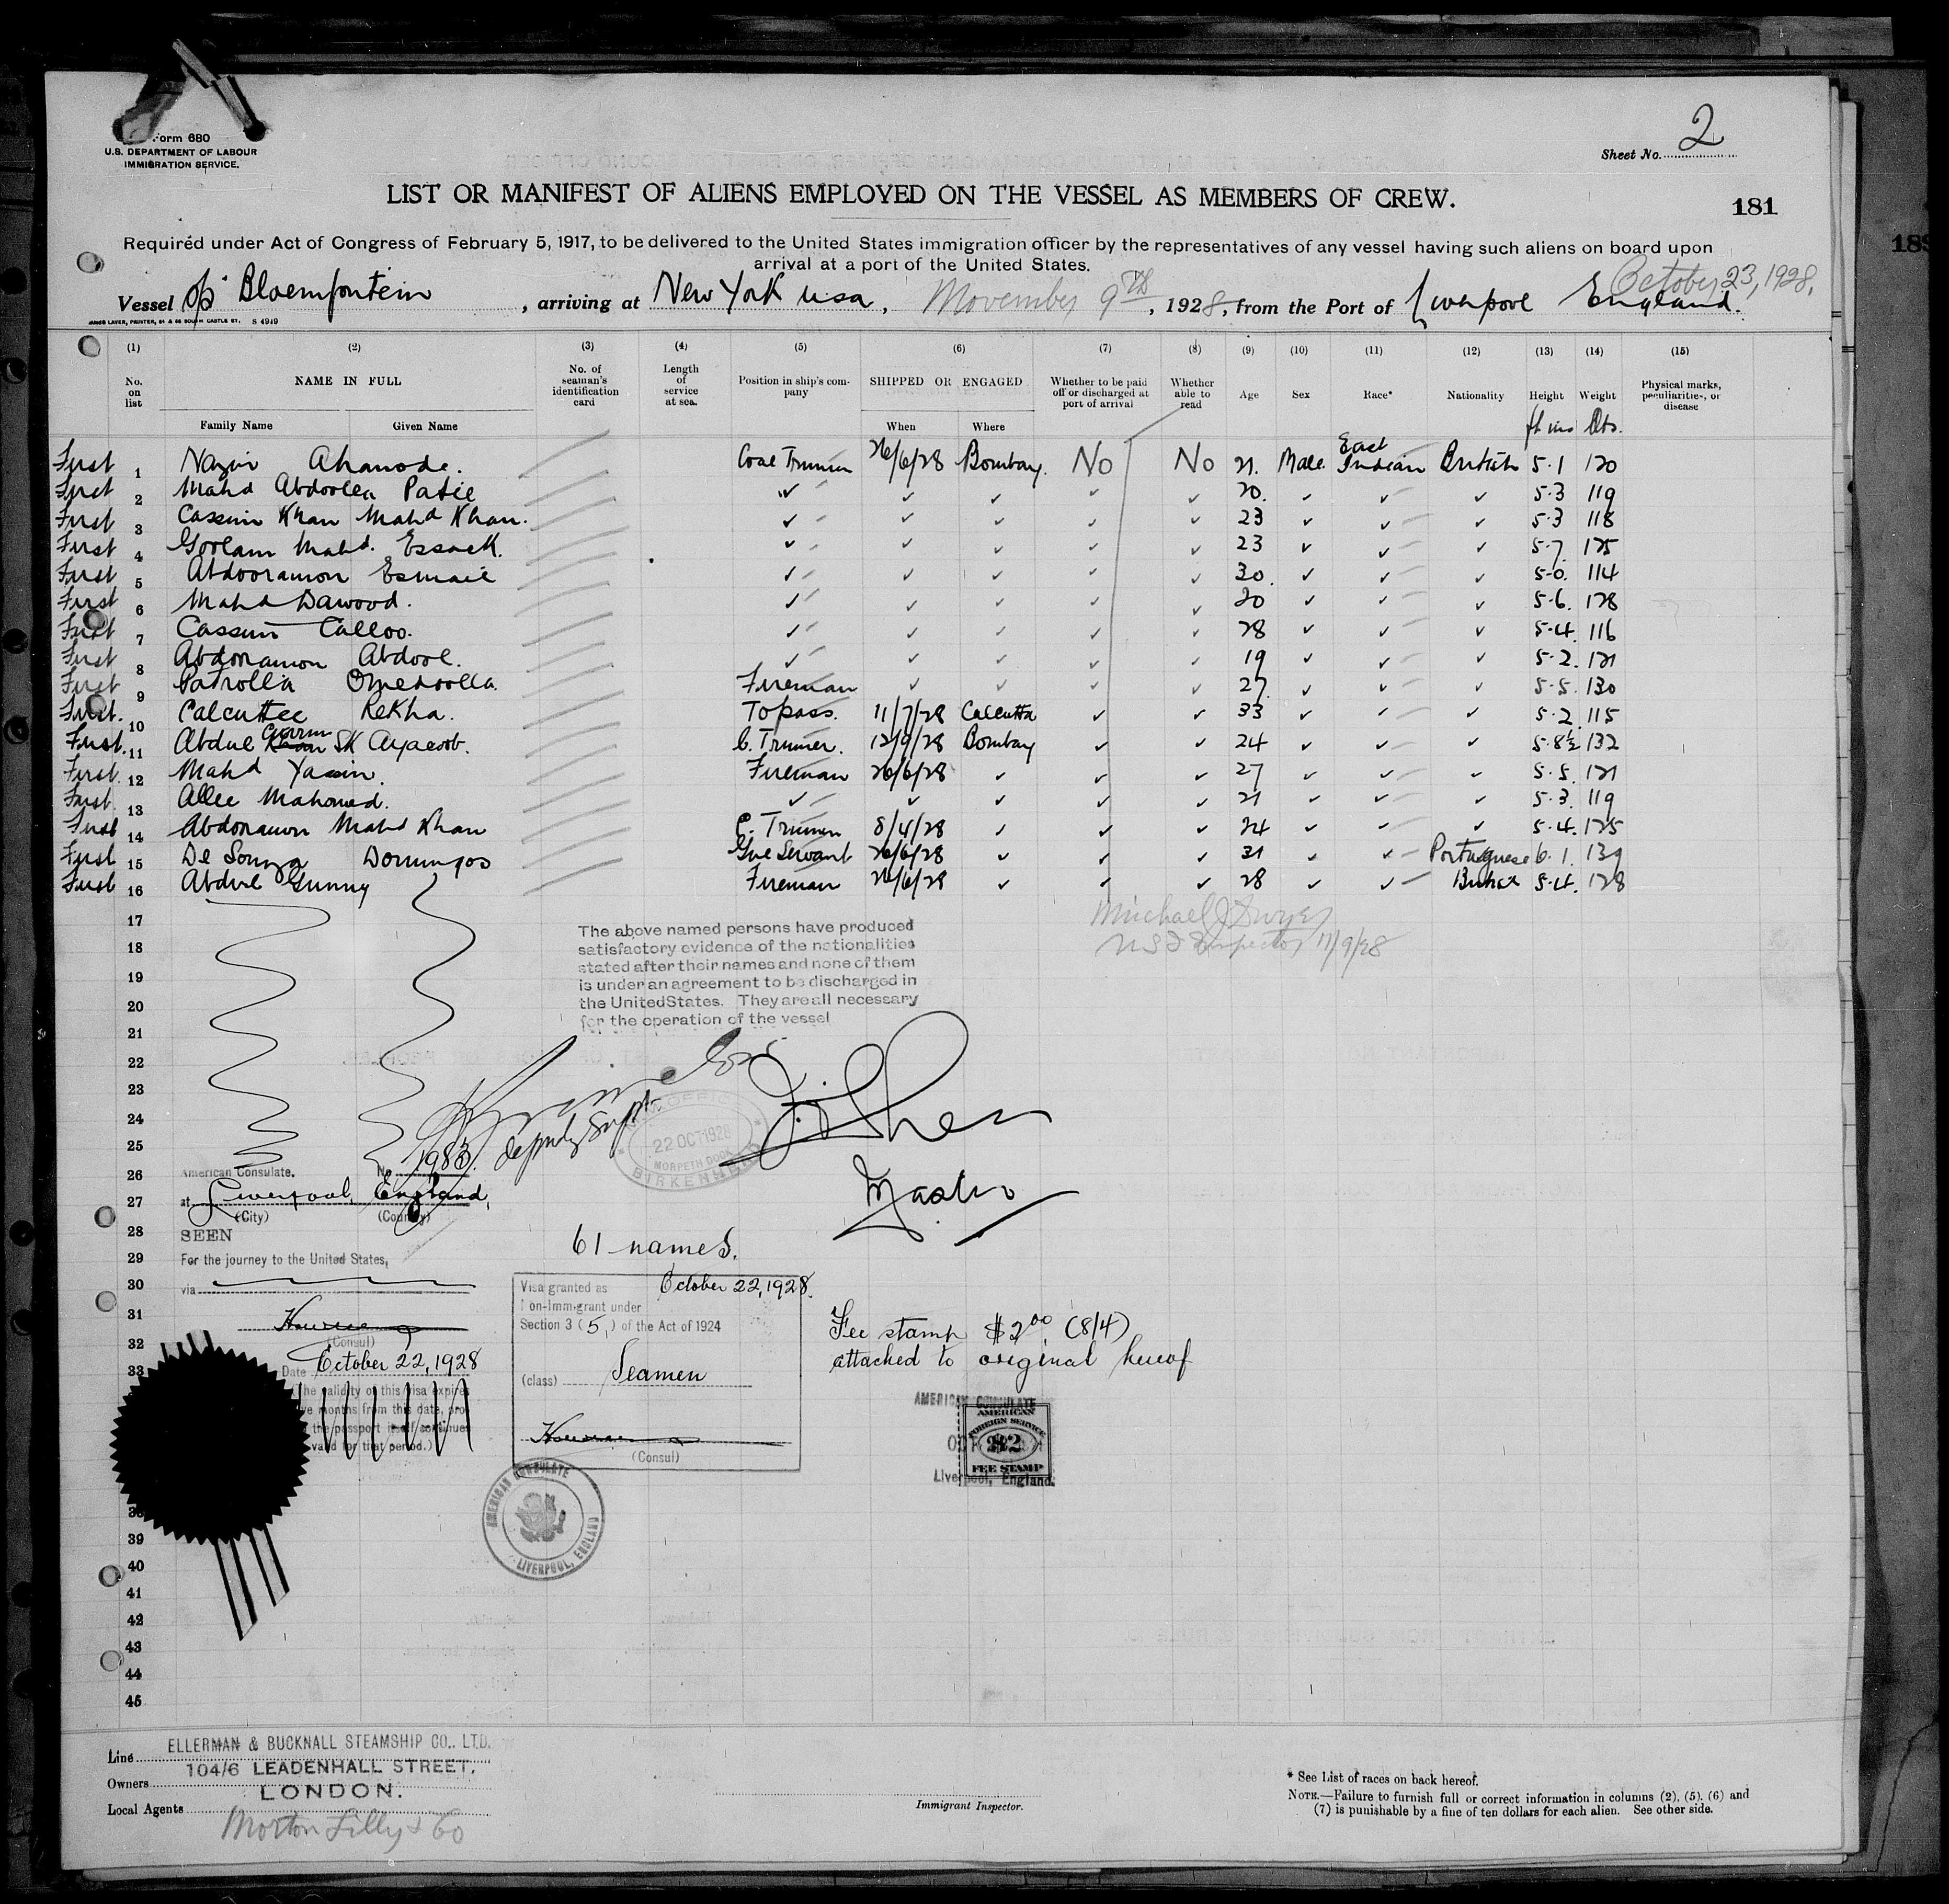 Form 680
U.S. DEPARTMENT OF LABOUR
IMMIGRATION SERVICE.
Sheet No. 2
LIST OR MANIFEST OF ALIENS EMPLOYED ON THE VESSEL AS MEMBERS OF CREW.
181
Required under Act of Congress of February 5, 1917, to be delivered to the United States immigration officer by the representatives of any vessel having such aliens on board upon
arrival at a port of the United States.
October 23, 1928.
Vessel Bloemfontein, arriving at New York usa, November 9th, 1928, from the Port of Liverpool England.
JAMES LAVER, PRINTER, S 4949
(1) (2) (3) (4) (5) (6) (7) (8) (9) (10) (11) (12) (13) (14) (15)
No. on list NAME IN FULL No. of seaman's identification card Length of service at sea. Position in ship's company SHIPPED OR ENGAGED Whether to be paid off or discharged at port of arrival Whether able to read Age Sex Race* Nationality Height Weight Physical marks, peculiarities, or disease
Family Name Given Name When Where ft ins lbs.
First 1 Coal Trimmer 26/6/28 Bombay. No No 21. Male East Indian British 5·1 120
First 2 Mahd Abdoolla ✓ ✓ ✓ ✓ ✓ 20. ✓ ✓ ✓ 5·3 119
First 3 Cassim Khan Mahd Khan. ✓ ✓ ✓ ✓ ✓ 23 ✓ ✓ ✓ 5·3 118
First 4 Goolam Mahd. Essack. ✓ ✓ ✓ ✓ ✓ 23 ✓ ✓ ✓ 5·7. 125
First 5 Abdooramon Esmail ✓ ✓ ✓ ✓ ✓ 30. ✓ ✓ ✓ 5·0. 114
First 6 Mahd Dawood. ✓ ✓ ✓ ✓ ✓ 20 ✓ ✓ ✓ 5·6. 128
First 7 Cassim Calloo. ✓ ✓ ✓ ✓ ✓ 28 ✓ ✓ ✓ 5·4. 116
First 8 Abdoramon Abdool. ✓ ✓ ✓ ✓ ✓ 19 ✓ ✓ ✓ 5·2. 121
First 9 Patrolla Omedoolla. Fireman ✓ ✓ ✓ ✓ 27 ✓ ✓ ✓ 5·5. 130
First. 10 Calcuttee Rekha. Topass. 11/7/28 Calcutta ✓ ✓ 33 ✓ ✓ ✓ 5·2. 115
First. 11 Abdul SK Ayacoob. C. Trimmer. 12/9/28 Bombay ✓ ✓ 24 ✓ ✓ ✓ 5·8½ 132
First. 12 Mahd Yassin. Fireman 26/6/28 ✓ ✓ ✓ 27 ✓ ✓ ✓ 5·5. 121
First. 13 Allee Mahomed. ✓ ✓ ✓ ✓ ✓ 21 ✓ ✓ ✓ 5·3. 119
First 14 Abdoramon Mahd Khan C. Trimmer 8/4/28 ✓ ✓ ✓ 24 ✓ ✓ ✓ 5·4. 125
First 15 De Souza Domingos Servant 26/6/28 ✓ ✓ ✓ 31 ✓ ✓ Portuguese 6·1. 139
First 16 Abdul Gunny Fireman 26/6/28 ✓ ✓ ✓ 28 ✓ ✓ British 5·4. 128
17
18
19
20
21
22
23
24
25
26
27
28
29
30
31
32
33
38
39
40
41
42
43
44
45
The above named persons have produced
satisfactory evidence of the nationalities
stated after their names and none of them
is under an agreement to be discharged in
the United States. They are all necessary
for the operation of the vessel
Michael J Dwyer
US I Inspector 11/9/28
deputy Supt.
22 OCT 1928
MORPETH DOCK
BIRKENHEAD
Master
American Consulate. No. 1983.
at Liverpool, England,
(City) (Country)
SEEN
For the journey to the United States,
via
(Consul)
Date October 22, 1928
The validity of this visa expires
months from this date, pro
the passport itself continues
valid for that period.)
61 names.
Visa granted as October 22, 1928.
Non-Immigrant under
Section 3 (5,) of the Act of 1924
(class) Seamen
(Consul)
Fee stamp $2.00 (8/4)
attached to original hereof
AMERICAN CONSULATE
AMERICAN
FOREIGN SERVICE
$2
FEE STAMP
Liverpool, England.
AMERICAN CONSULATE
LIVERPOOL, ENGLAND
Line ELLERMAN & BUCKNALL STEAMSHIP CO., LTD.
104/6 LEADENHALL STREET,
Owners LONDON.
Local Agents Morton Lilly & Co
Immigrant Inspector.
* See List of races on back hereof.
NOTE.—Failure to furnish full or correct information in columns (2), (5), (6) and
(7) is punishable by a fine of ten dollars for each alien. See other side.